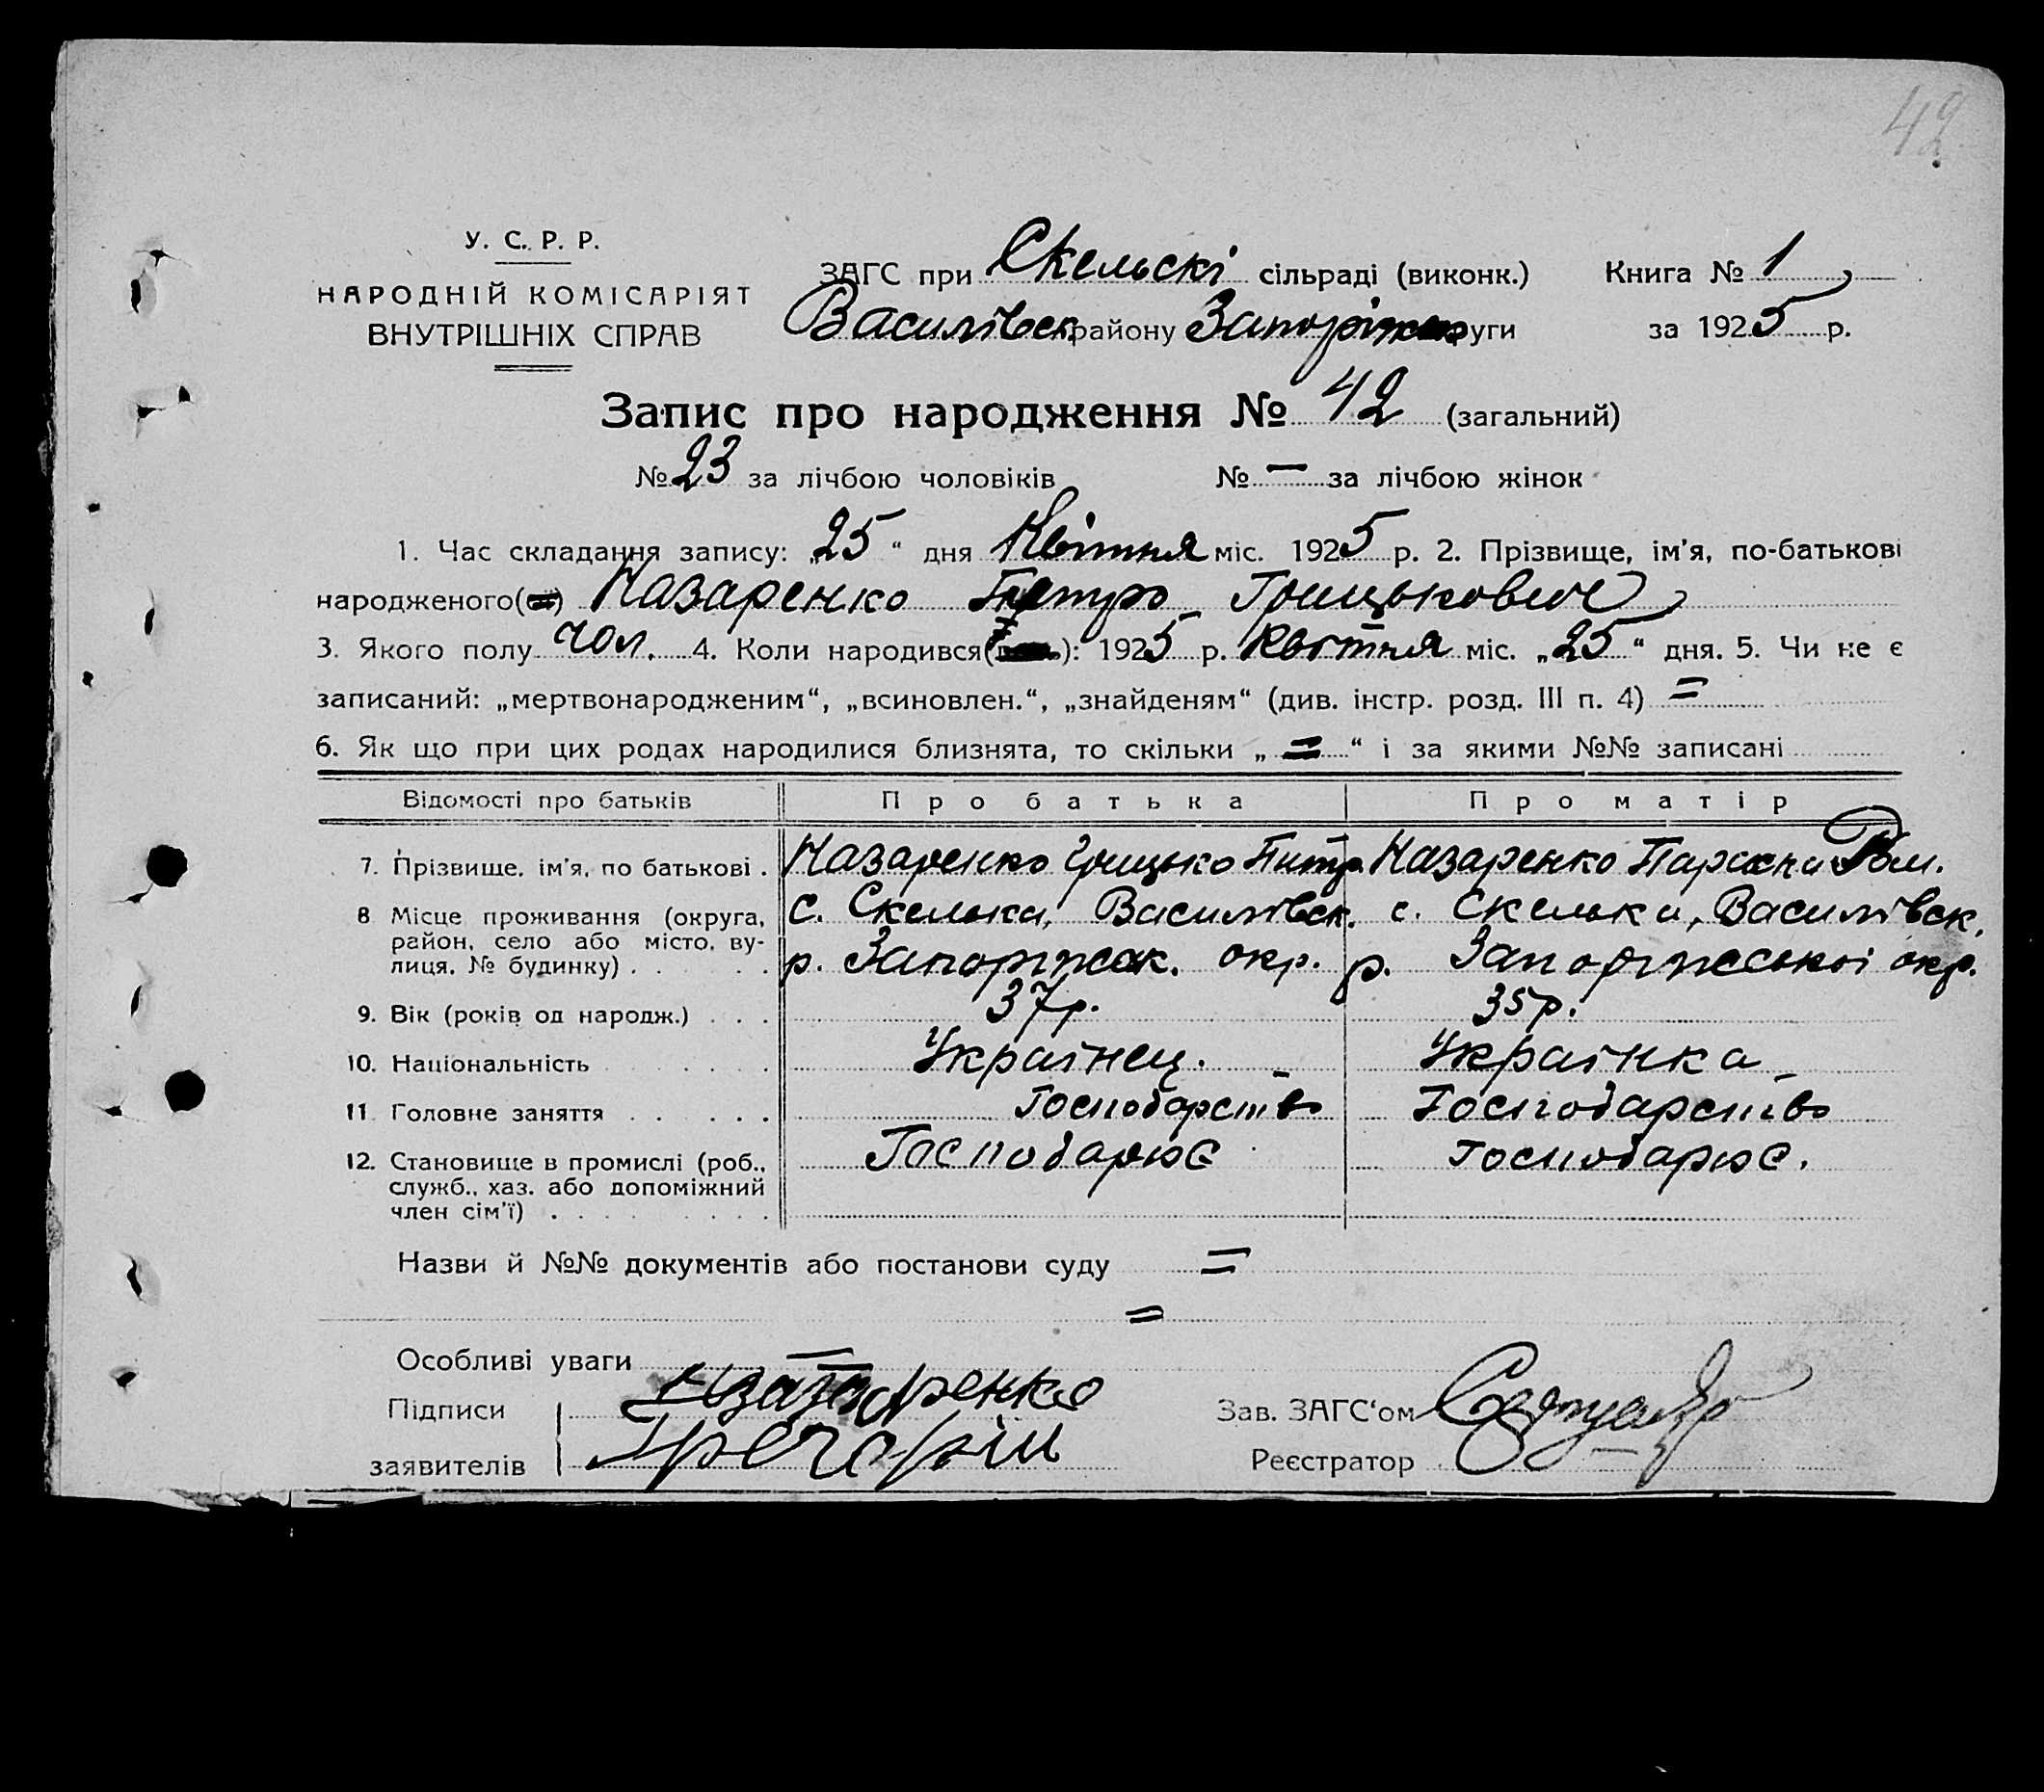 42
У. С. Р. Р.
НАРОДНІЙ КОМІСАРІЯТ
ВНУТРІШНІХ СПРАВ
ЗАГС при Скельскі сільраді (виконк.) Книга № 1
Василівск району Запоріжск руги за 1925 р.
Запис про народження № 42 (загальний)
№ 23 за лічбою чоловіків № — за лічбою жінок
1. Час складання запису: „25“ дня Квітня міс. 1925 р. 2. Прізвище, ім'я, по-батькові
народженого( ) Назаренко Петро Грицькович
3. Якого полу чол. 4. Коли народився( ): 1925 р. Квітня міс. „25“ дня. 5. Чи не є
записаний: „мертвонародженим“, „всиновлен.“, „знайденям“ (див. інстр. розд. III п. 4) =
6. Як що при цих родах народилися близнята, то скільки „ = “ і за якими №№ записані
Відомості про батьків Про батька Про матір
7. Прізвище, ім'я, по батькові . Назаренко Грицько Питр. Назаренко Параска Ром.
8 Місце проживання (округа, район, село або місто, вулиця, № будинку) . . . . с. Скелька, Василівск. р. Запоріжск. окр. с. Скелька, Василівск. р. Запоріжської окр.
9. Вік (років од народж.) . . . 37 р. 35 р.
10. Національність . . . . . . Українец. Українка
11 Головне заняття . . . . . Господарство Господарство
12. Становище в промислі (роб., служб., хаз. або допоміжний член сім'ї) . . . . . . . Господарює Господарює.
Назви й №№ документів або постанови суду =
=
Особливі уваги —
Підписи Назаренко Зав. ЗАГС'ом
заявителів Грегорій Реєстратор